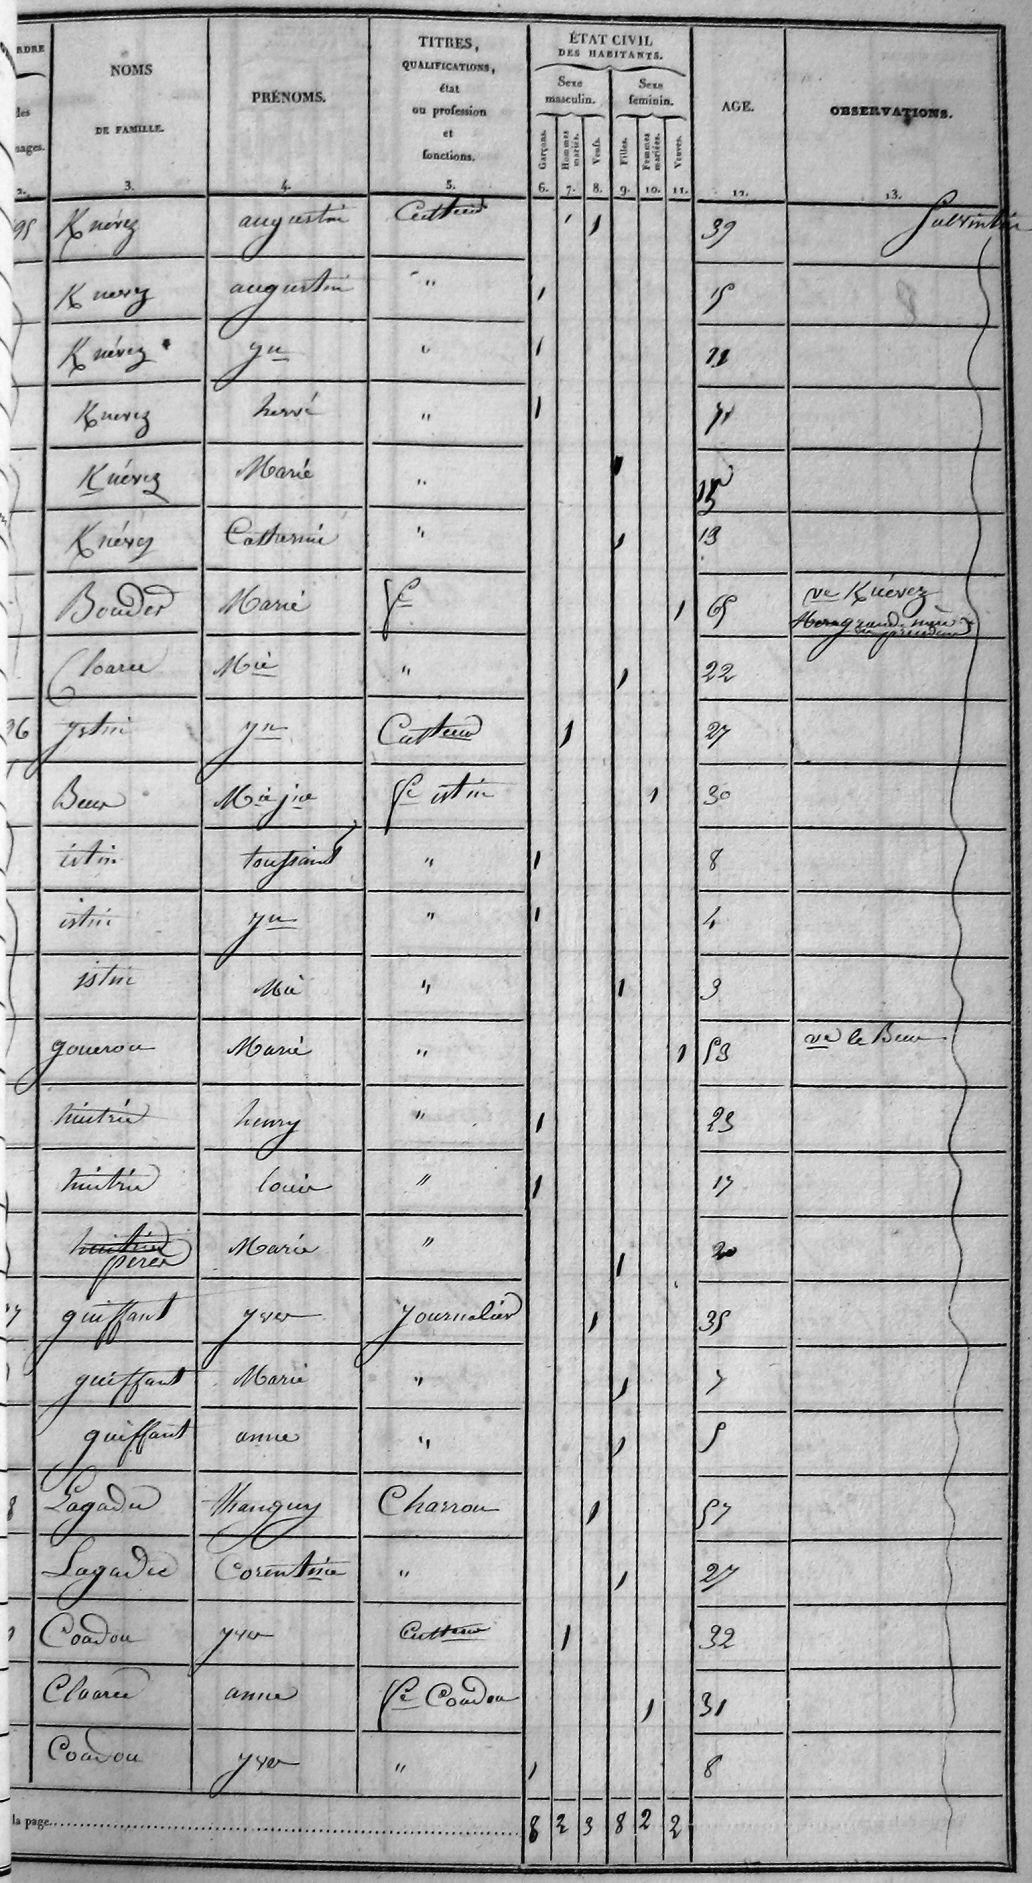 RDRE
des
nages.
2.
NOMS
DE FAMILLE.
3.
PRÉNOMS.
4.
TITRES,
QUALIFICATIONS,
état
ou profession
et
fonctions.
5.
ÉTAT CIVIL
DES HABITANTS.
Sexe
masculin.
Sexe
feminin.
Garçons.
Hommes mariés.
Veufs.
Filles.
Femmes mariées.
Veuves.
6. 7. 8. 9. 10. 11.
AGE.
12.
OBSERVATIONS.
13.
95 Knévez augustin Cultteur 1 39
Knevez augustin " 1 15
Knévez yn " 1
Knevez hervé " 1
Knévez Marie " 1 15
Knévez Catherine " 1 13
Bouder Marie fe 1 65 ve Knévez
grand mère
Cloarec Mie " 1 22
96 ystin yn Cultteur 1 27
Beur Mie jne fe istin 1 30
istin toussaint " 1 8
istin yn " 1 4
istin Mie " 1 3
goueron Marie " 1 53 ve le Beur
henry " 1 23
louis " 1 17
Marie " 1 20
7 guiffant yves Journalier 1 35
guiffant Marie " 1 7
guiffant anne " 1 5
8 Lagadec thanguy Charron 1 57
Lagadec Corentine " 1 27
Coadou yves Cultteur 1 32
Cloarec anne fe Coadou 1 31
Coadou yves " 1 8
la page 8 2 3 8 2 2